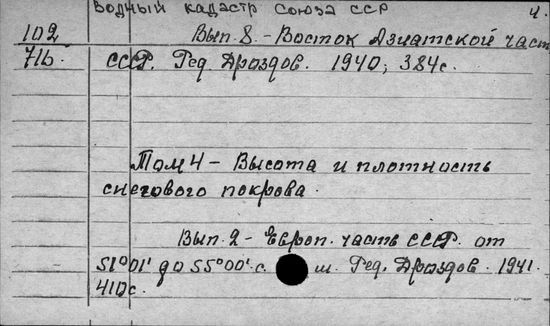 Водный кадастр Союза ССР ч.
102 Вып. 8. - Восток Азиатской част
716. СССР. Ред. Дроздов. 1940; 384 с.
Том 4 - Высота и плотность
снегового покрова.
Вып. 2 - Европ. часть СССР. от
51°01' до 55°00'. с. ш. Ред. Дроздов. 1941.
410 с.